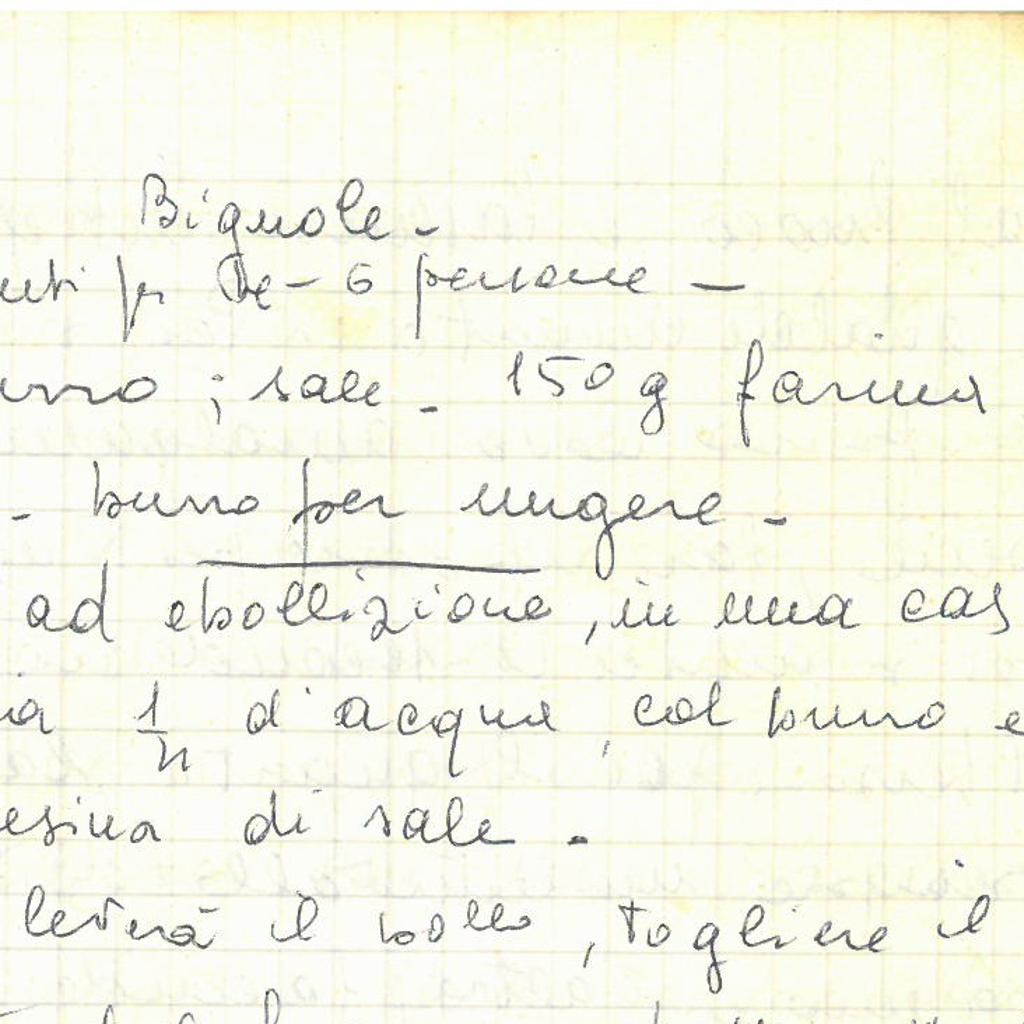 Bignole -
per 6 persone -
; sale - 150 g farina
- burro per ungere -
ad ebollizione, in una cas
d'acqua, col burro e
esina di sale -
leverà il bollo, togliere il